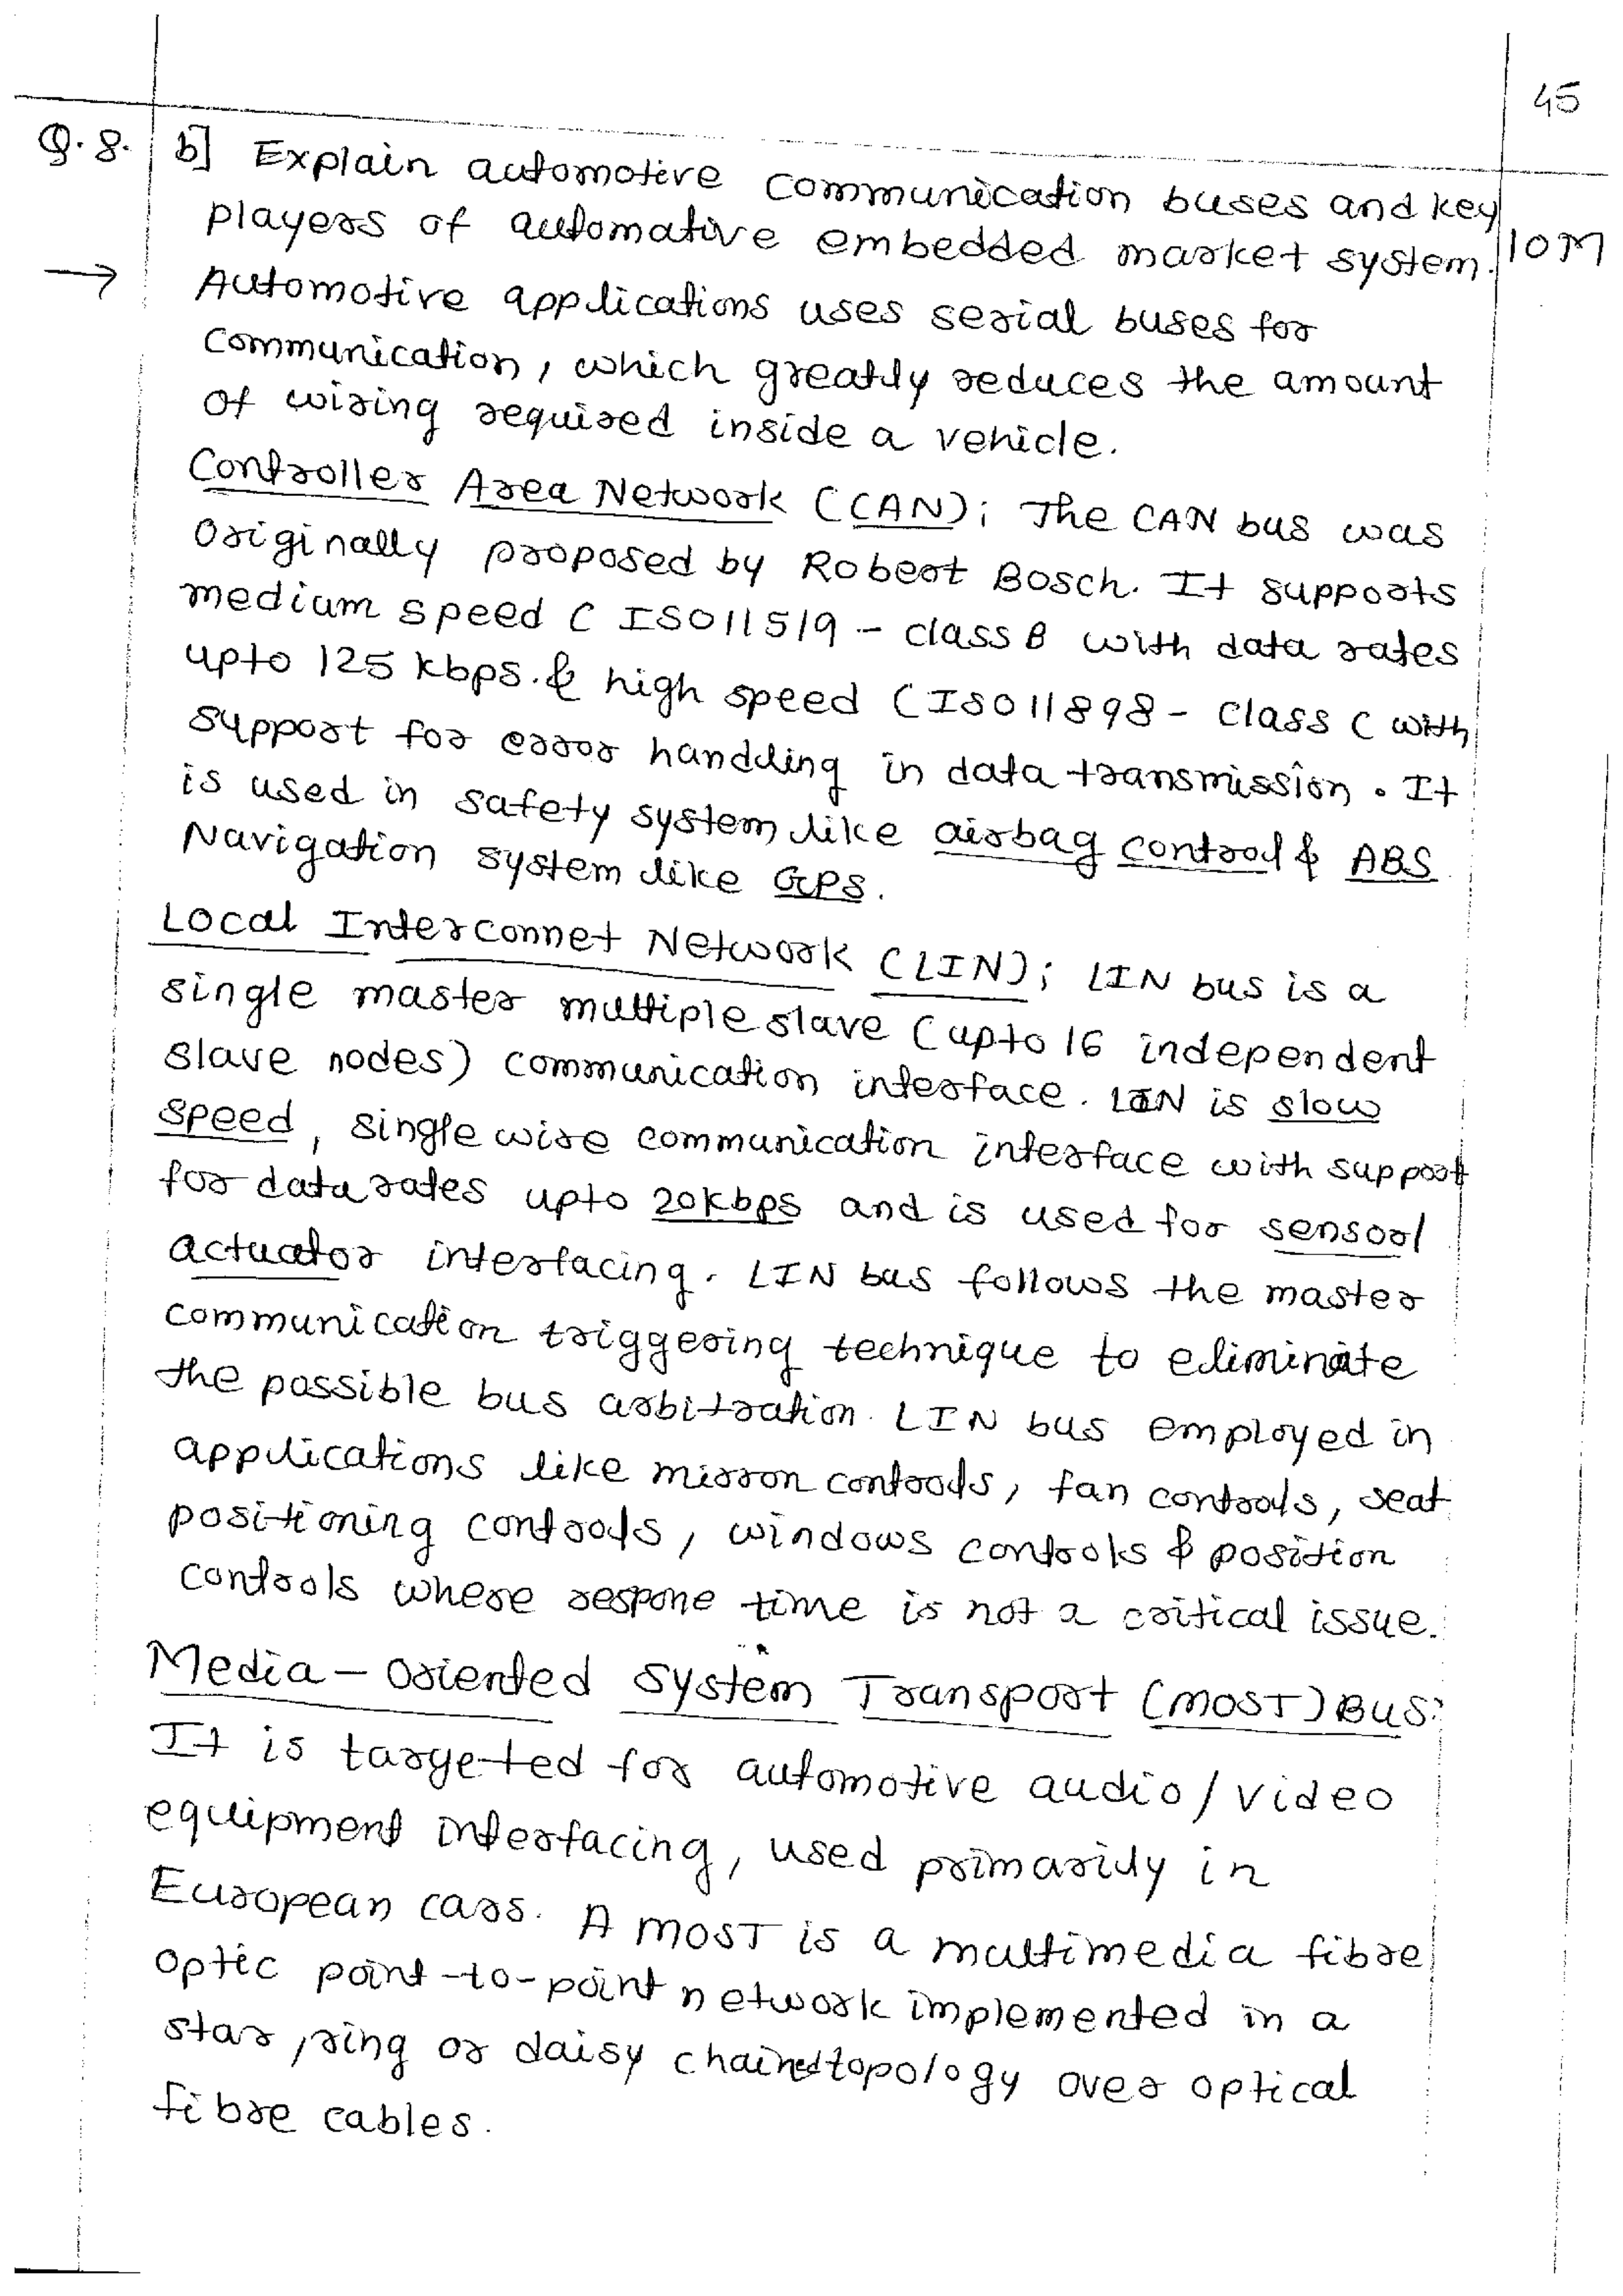 45
Q.8. b] Explain automotive communication buses and key
players of automative embedded market system. 10M
→ Automotive applications uses serial buses for
communication, which greatly reduces the amount
of wiring required inside a vehicle.
Controller Area Network (CAN); The CAN bus was
originally proposed by Robert Bosch. It supports
medium speed ( ISO11519 - class B with data rates
upto 125 kbps. & high speed (ISO11898 - Class C with
support for error handling in data transmission. It
is used in safety system like airbag control & ABS
Navigation system like GPS.
Local Interconnet Network (LIN); LIN bus is a
single master multiple slave (upto 16 independent
slave nodes) communication interface. LIN is slow
speed, single wire communication interface with support
for data rates upto 20kbps and is used for sensor/
actuator interfacing. LIN bus follows the master
communication triggering technique to eliminate
the possible bus arbitration. LIN bus employed in
applications like mirron controls, fan controls, seat
positioning controls, windows controls & position
controls where respone time is not a critical issue.
Media - Oriented System Transport (MOST) BUS:
It is targeted for automotive audio/video
equipment interfacing, used primarily in
European cars. A MOST is a multimedia fibre
optic point-to-point network implemented in a
star, ring or daisy chained topology over optical
fibre cables.